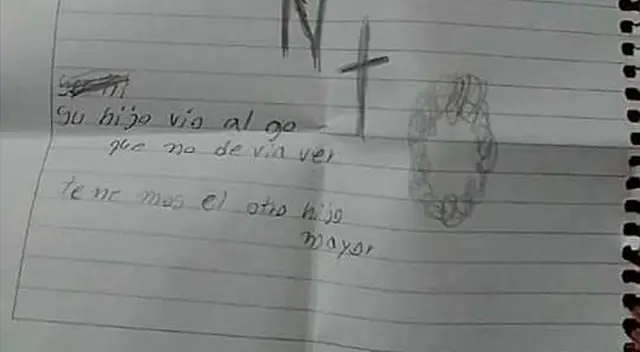 N
Su hijo vio al go
que no de via ver
tene mos el otro hijo
mayor